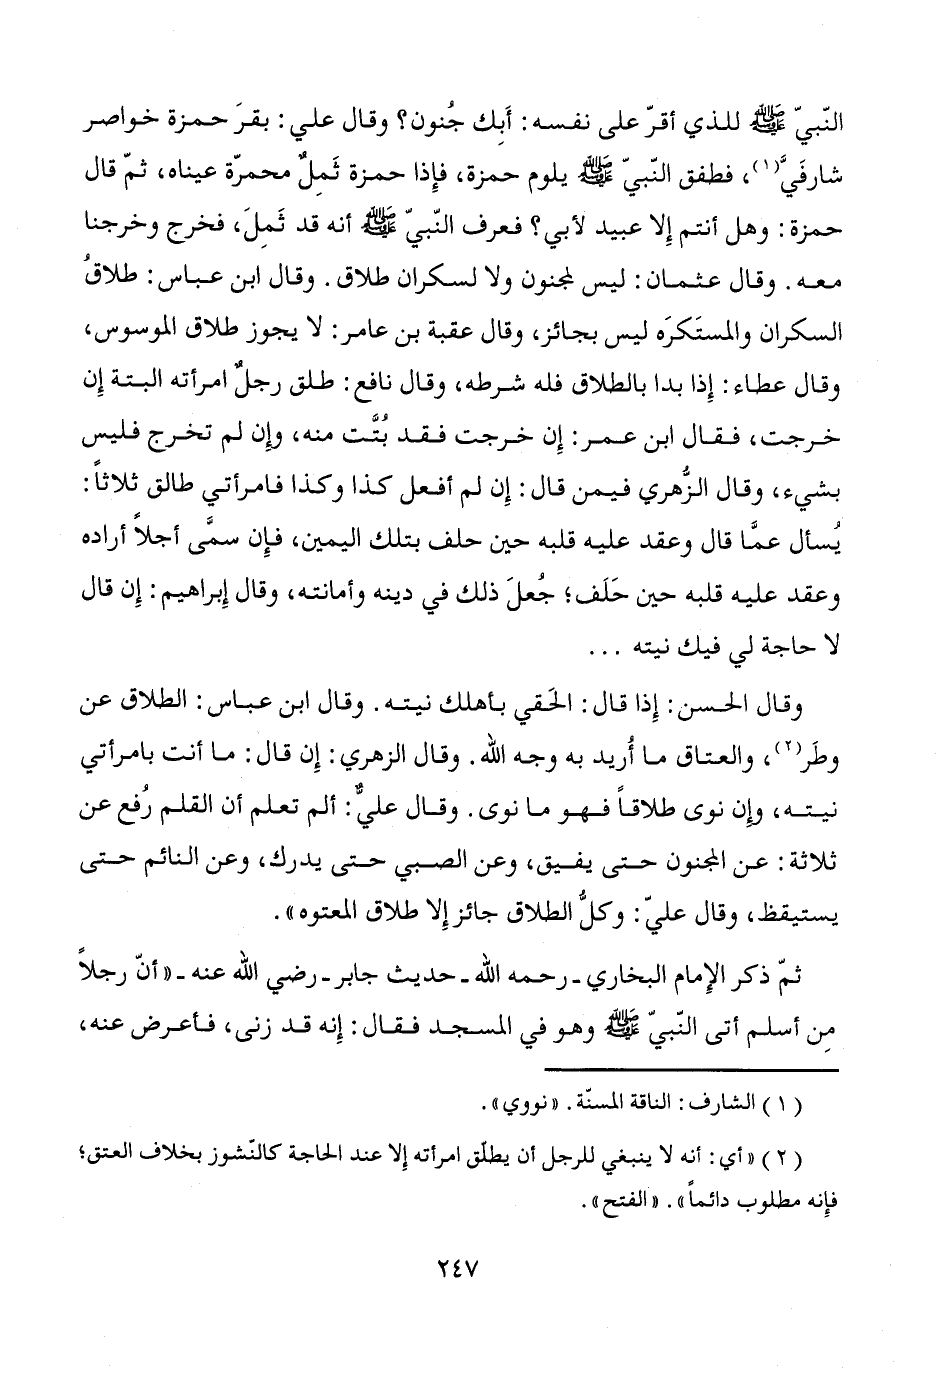 النّبيّ ﷺ للذي أقرّ على نفسه: أَبِك جُنون؟ وقال علي: بقرَ حمزة خواصر
شارفَيَّ(١)، فطفق النّبيّ ﷺ يلوم حمزة، فإذا حمزة ثَمِلٌ محمرّة عيناه، ثمّ قال
حمزة: وهل أنتم إلا عبيد لأبي؟ فعرف النّبيّ ﷺ أنه قد ثَمِلَ، فخرج وخرجنا
معه. وقال عثمان: ليس لمجنون ولا لسكران طلاق. وقال ابن عباس: طلاقُ
السكران والمستَكرَه ليس بجائز، وقال عقبة بن عامر: لا يجوز طلاق الموسوس،
وقال عطاء: إذا بدا بالطلاق فله شرطه، وقال نافع: طلق رجلٌ امرأته البتة إن
خرجت، فقال ابن عمر: إن خرجت فقد بُتَّت منه، وإن لم تخرج فليس
بشيء، وقال الزُّهري فيمن قال: إن لم أفعل كذا وكذا فامرأتي طالق ثلاثاً:
يُسأل عمَّا قال وعقد عليه قلبه حين حلف بتلك اليمين، فإن سمَّى أجلاً أراده
وعقد عليه قلبه حين حَلَف؛ جُعلَ ذلك في دينه وأمانته، وقال إبراهيم: إن قال
لا حاجة لي فيك نيته ...
وقال الحسن: إذا قال: الحَقي بأهلك نيته. وقال ابن عباس: الطلاق عن
وطَر(٢)، والعتاق ما أُريد به وجه الله. وقال الزهري: إن قال: ما أنت بامرأتي
نيته، وإن نوى طلاقاً فهو ما نوى. وقال عليٌّ: ألم تعلم أن القلم رُفع عن
ثلاثة: عن المجنون حتى يفيق، وعن الصبي حتى يدرك، وعن النائم حتى
يستيقظ، وقال عليّ: وكلُّ الطلاق جائز إلا طلاق المعتوه».
ثمّ ذكر الإمام البخاري ـ رحمه الله ـ حديث جابر ـ رضي الله عنه ـ «أنّ رجلاً
مِن أسلم أتى النّبيّ ﷺ وهو في المسجد فقال: إنه قد زنى، فأعرض عنه،
(١) الشارف: الناقة المسنّة. «نووي».
(٢) «أي: أنه لا ينبغي للرجل أن يطلّق امرأته إلا عند الحاجة كالنّشوز بخلاف العتق؛
فإنه مطلوب دائماً». «الفتح».
٢٤٧